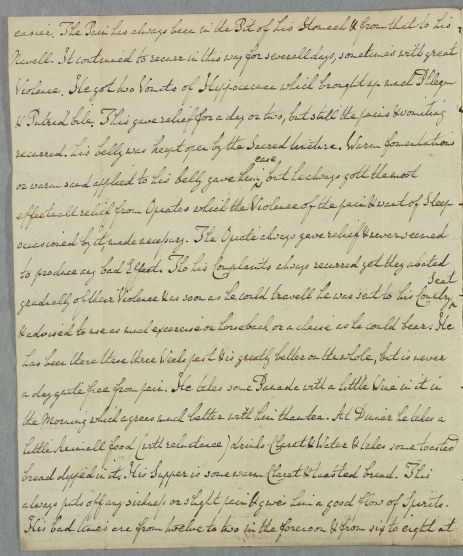 easier. The Pain has always been in the Pit of his Stomach & from that to his
Navell. It continued to recurr in this way for severall days, sometimes with great
Violence. He got two Vomits of Hyppocacuan which brought up much Phlegm
& Putrid bile. This gave relief for a day or two, but still the pains & vomiting
recurred. his belly was keept open by the Sacred tincture. Warm fomentations
or warm sand applied to his belly gave him ease, but he always gott the most
effectuall relief from Opiates which the Violence of the pain & want of Sleep
occasioned by it made necessary. The Opiate always gave relief & never seemed
to produce any bad Effect. Tho his Complaints always recurred yet they abated
gradually of their Violence & as soon as he could travell he was sent to his Country Seat
& advised to use as much exercise on horseback or a chaise as he could bear. He
has been there these three Weeks past & is greatly better on the whole, but is never
a day quite free from pain. He takes some Panada with a little Wine in it in
the Morning which agrees much better with him than tea. At Dinner he takes a
little Animall food (with reluctance) drinks Claret & Water & takes some toasted
bread dipped in it. His Supper is some warm Claret & toasted bread. This
always puts off any sickness or slight pain & gives him a good flow of Spirits.
His bad times are from twelve to two in the forenoon & from six to eight at